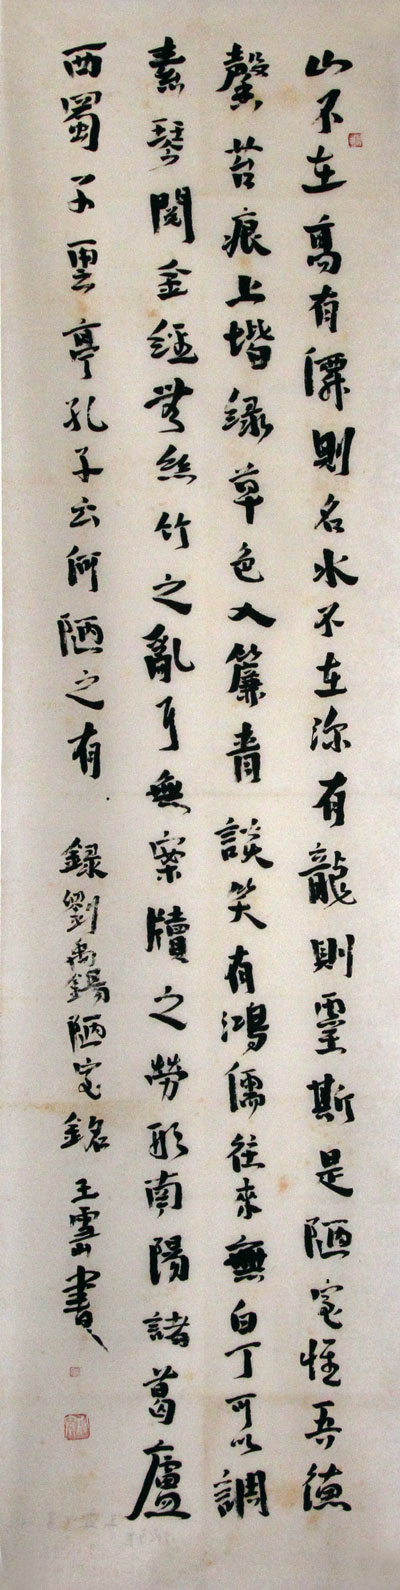 山不在高有僊則名水不在深有龍則靈斯是陋室惟吾德
馨苔痕上堦緑草色入簾青談笑有鴻儒往來無白丁可以調
素琴閱金經無絲竹之亂耳無案牘之勞形南陽諸葛廬
西蜀子雲亭孔子云何陋之有 録劉禹錫陋室銘 王書